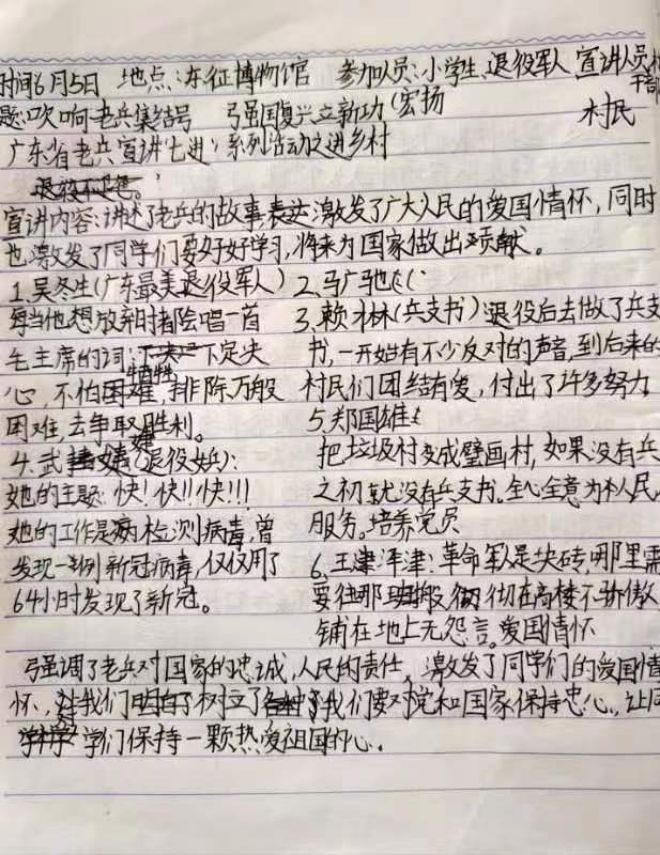 时间6月5日 地点:东征博物馆 参加人员:小学生、退役军人 宣讲人员
题:吹响老兵集结号 强国复兴立新功(宏扬 干部
村民
广东省老兵宣讲“七进”系列活动之进乡村
宣讲内容:讲述了老兵的故事,激发了广大人民的爱国情怀,同时
也激发了同学们要好好学习,将来为国家做出贡献。
1.吴冬生(广东最美退役军人) 2.马广驰
每当他想放弃时都会唱一首 3.赖林(兵支书)退役后去做了兵支
毛主席的词:下定决 书,一开始有不少反对的声音,到后来的
心,不怕牺牲,排除万般 村民们团结有爱,付出了许多努力
困难,去争取胜利。 5.郑国雄
4.武婕(退役女兵): 把垃圾村变成壁画村,如果没有兵
她的主题:快!快!!快!!! 之初就没有兵支书。全心全意为村人民
她的工作是病检测病毒,曾 服务。培养党员
发现一例新冠病毒,仅仅用了 6.王津津:革命军人是块砖,哪里需
64小时发现了新冠。 要往那搬 砌在高楼不骄傲
铺在地上无怨言。爱国情怀
强调了老兵对国家的忠诚,人民的责任,激发了同学们的爱国情
怀,让我们树立了我们要对党和国家保持忠心,让同
学们保持一颗热爱祖国的心。